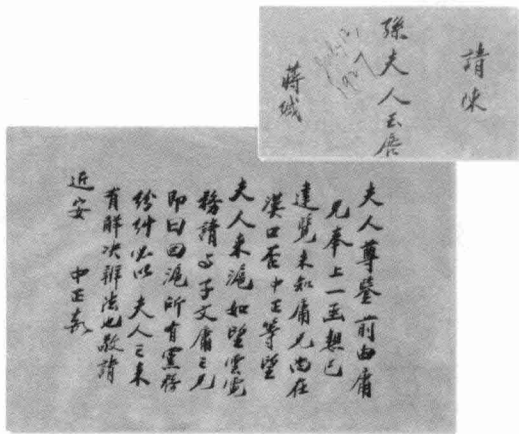 請陳
孫夫人玉啓
蔣緘
1927
夫人尊鑒前由庸
兄奉上一函想已
達覽未知庸兄尚在
漢口否中正等望
夫人來滬如望雲霓
務請与子文庸之兄
即日回滬所有黨務
紛糾必以夫人之來
有解決辦法也敬請
近安 中正